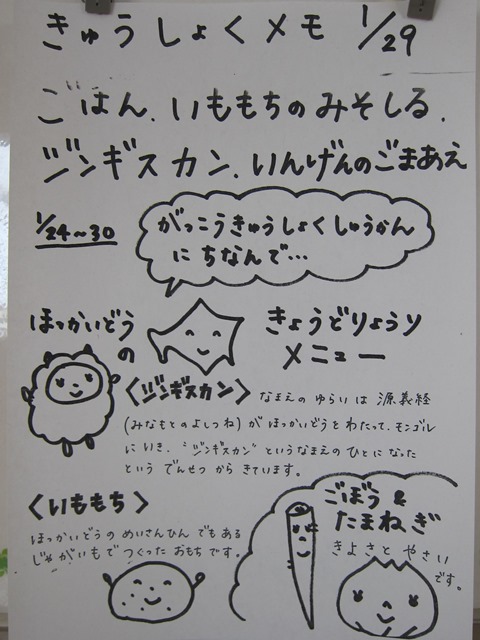 きゅうしょくメモ 1/29
ごはん、いももちのみそしる、
ジンギスカン、いんげんのごまあえ
1/24～30
がっこうきゅうしょくしゅうかん
にちなんで…
ほっかいどう
の
きょうどりょうり
メニュー
〈ジンギスカン〉
なまえの ゆらいは 源義経
(みなもとのよしつね) が ほっかいどうを わたって、モンゴル
に いき、"ジンギスカン" という なまえの ひとに なった
という でんせつ から きています。
〈いももち〉
ほっかいどうの めいさんひん でも ある
じゃがいもで つくった おもち です。
ごぼう&
たまねぎ
きよさと やさい
です。